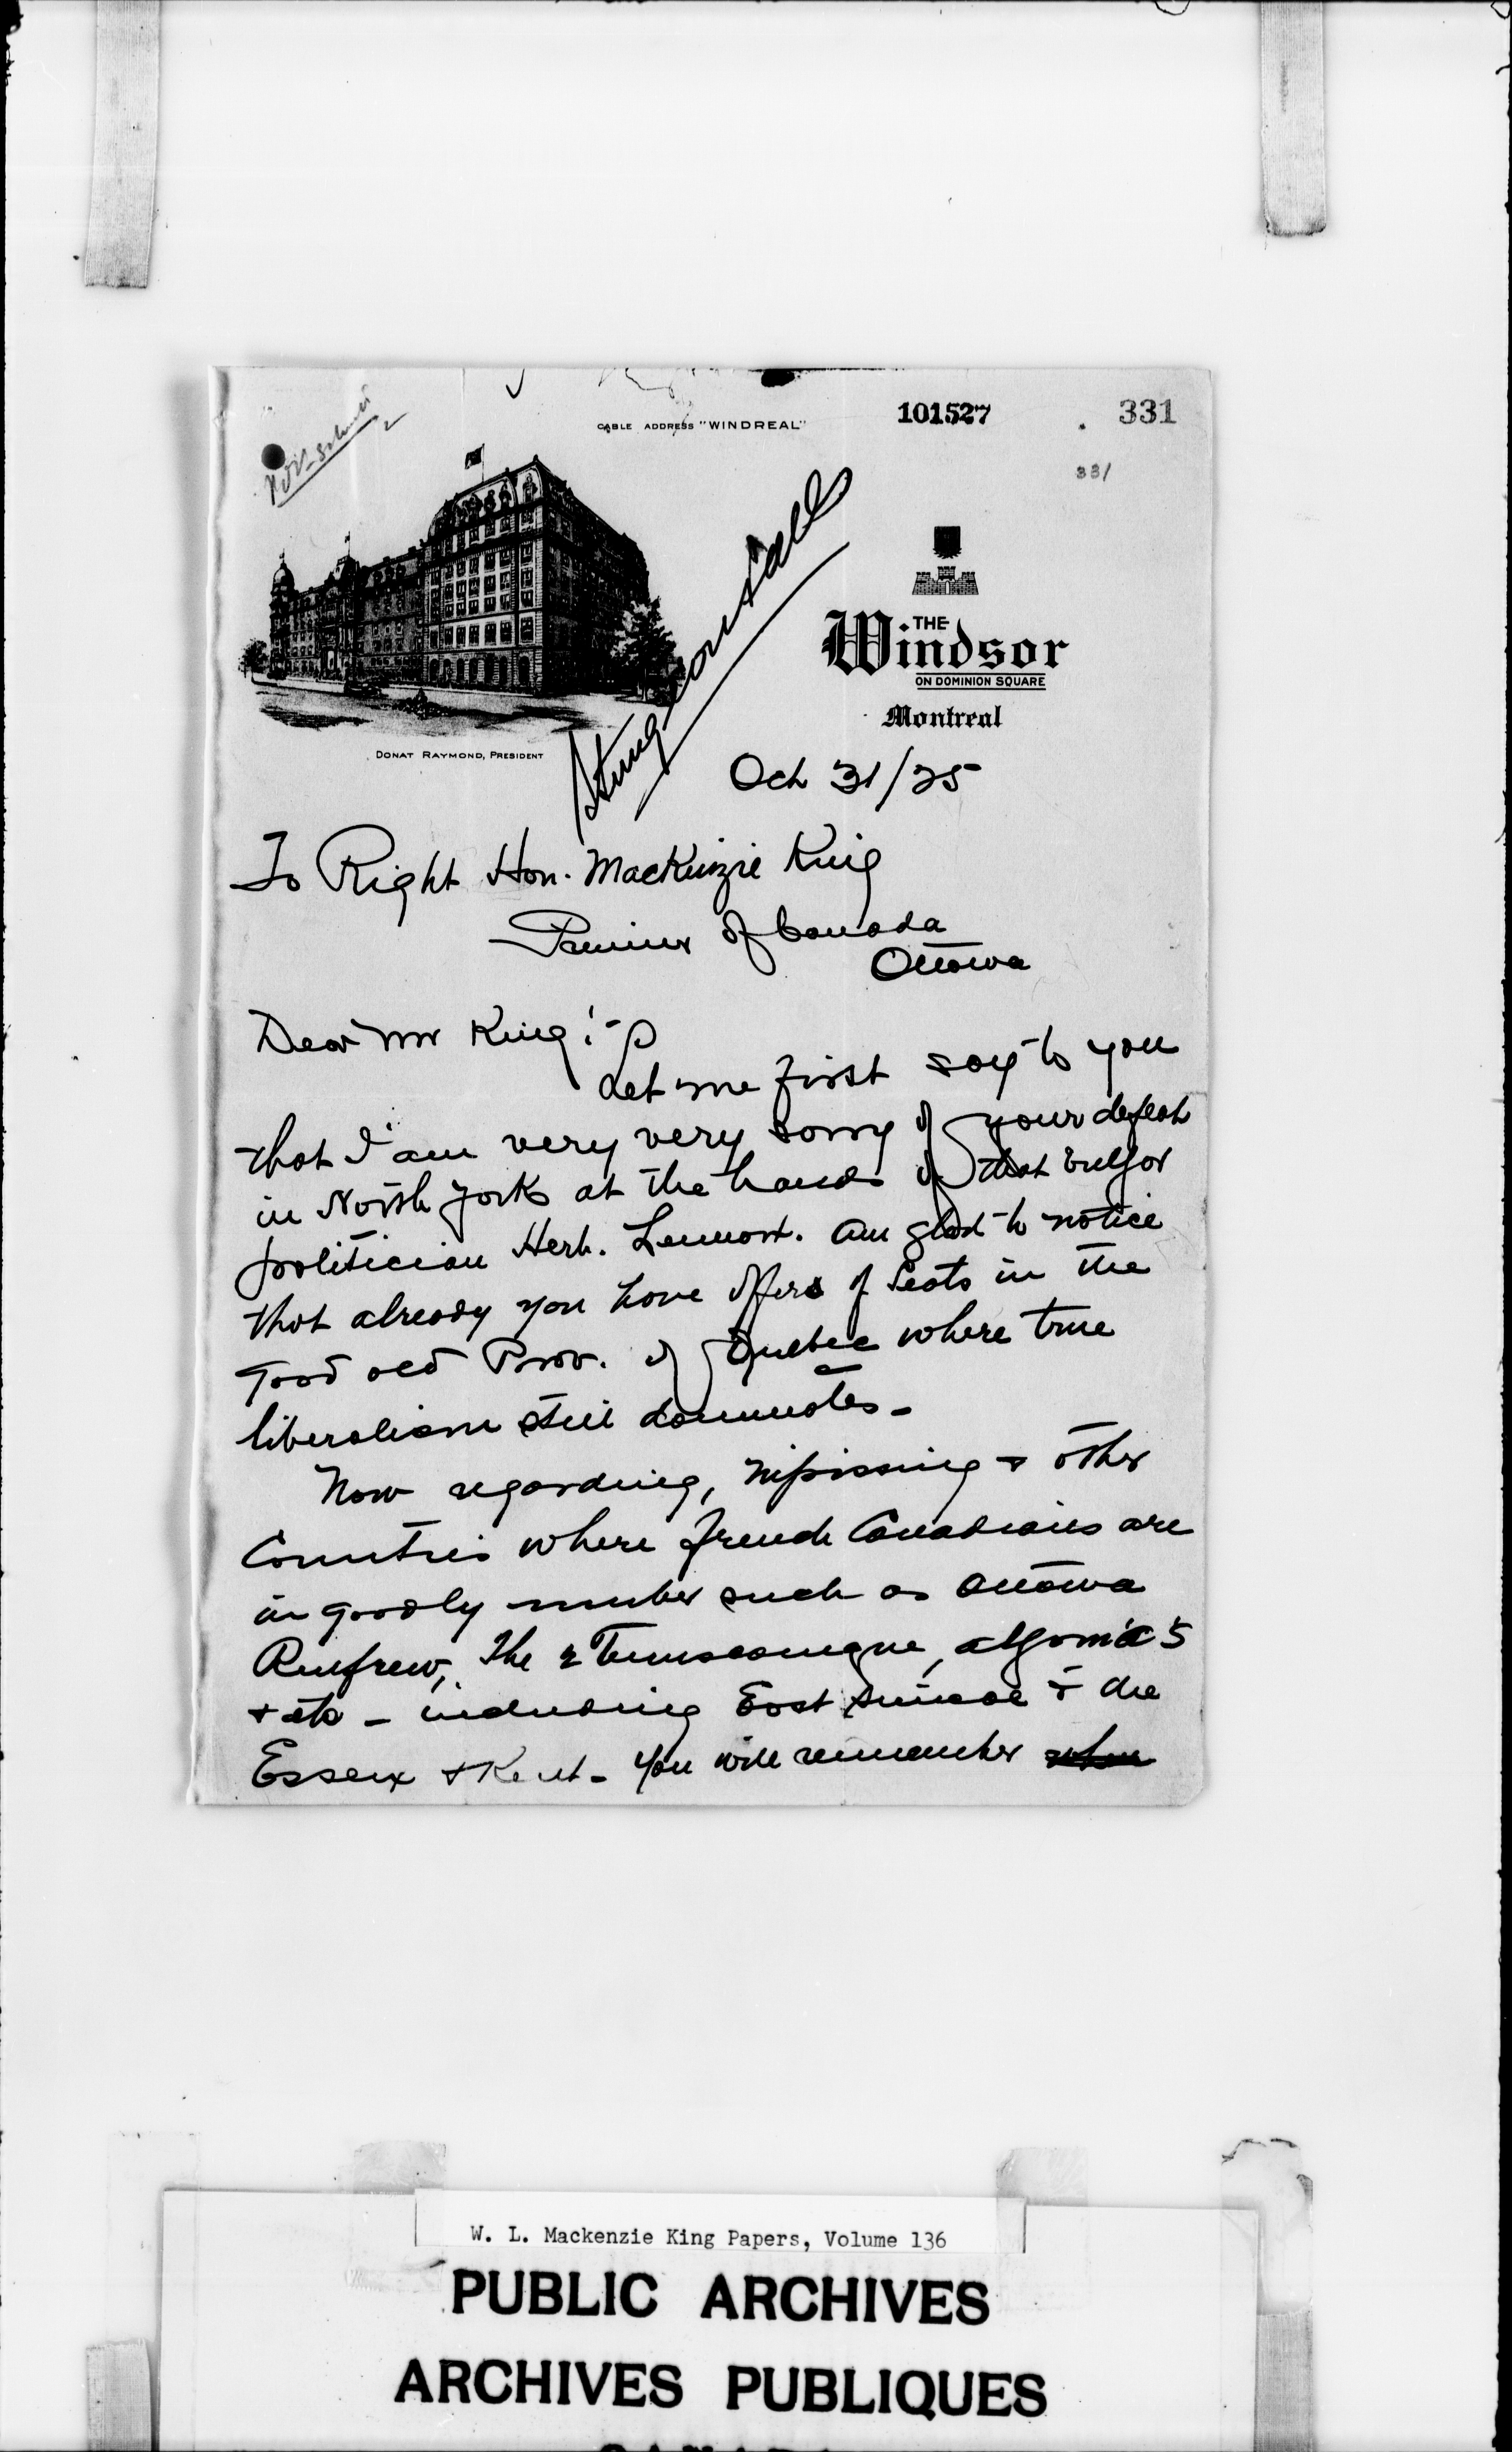 101527
331
331
CABLE ADDRESS "WINDREAL"
THE
Windsor
ON DOMINION SQUARE
Montreal
DONAT RAYMOND, PRESIDENT
Sturgeon Falls
Oct 31/25
To Right Hon. MacKenzie King
Premier of Canada
Ottawa
Dear Mr King:-
Let me first say to you
that I am very very sorry of your defeat
in North York at the hands of that vulgar
politician Herb. Lennox. Am glad to notice
that already you have offers of Seats in the
good old Prov. of Quebec where true
liberalism still dominates-
Now regarding, Nipissing & other
Counties where french Canadians are
in goodly number such as Ottawa
Renfrew, The 2 Temiscamgue, Algoma's
& etc - including East Simcoe & the
Essex & Kent- You will remember
W. L. Mackenzie King Papers, Volume 136
PUBLIC ARCHIVES
ARCHIVES PUBLIQUES